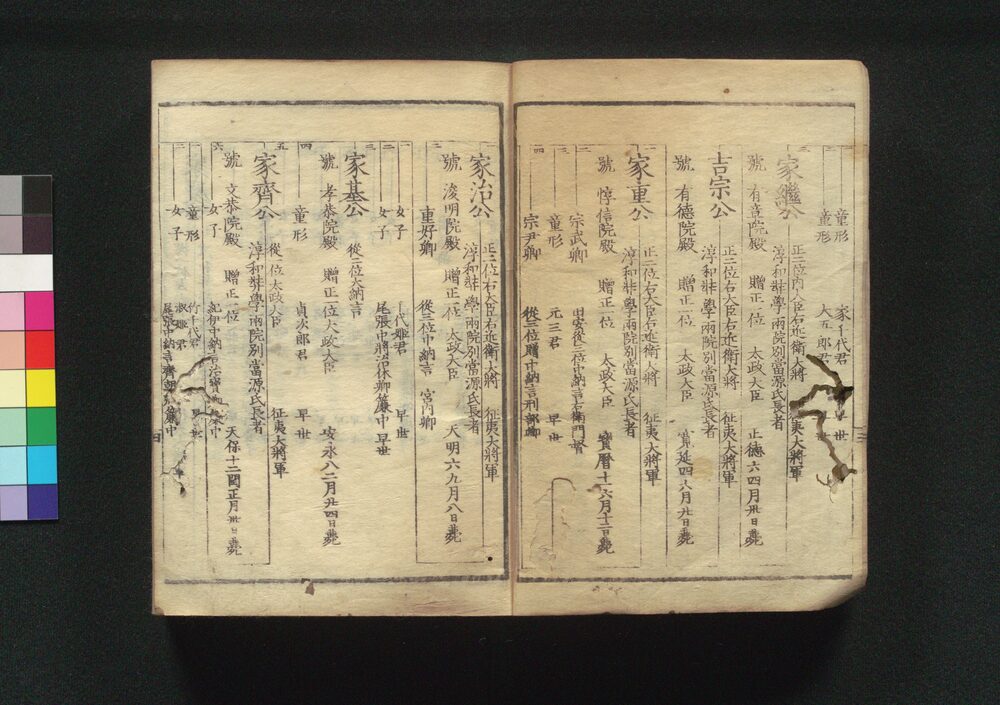 一 童形 家千代君 早世
二 童形 大五郎君
三
家繼公
正二位内大臣右近衛大將 征夷大將軍
淳和弉學兩院別當源氏長者
號 有章院殿 贈正一位 太政大臣 正德六四月卅日薨
吉宗公
正二位右大臣右近衛大將 征夷大將軍
淳和弉學兩院別當源氏長者
號 有德院殿 贈正一位 太政大臣 寛延四六月廿日薨
一
家重公
正二位右大臣右近衛大將 征夷大將軍
淳和弉學兩院別當源氏長者
號 惇信院殿 贈正一位 太政大臣 寶曆十一六月十二日薨
二 宗武卿 田安從三位中納言右衛門督
三 童形 元三君 早世
四 宗尹卿 從三位贈中納言刑部卿
一
家治公
正二位右大臣右近衛大將 征夷大將軍
淳和弉學兩院別當源氏長者
號 浚明院殿 贈正一位 太政大臣 天明六九月八日薨
二 重好卿 從三位中納言 宮内卿
一 女子 千代姫君 早世
二 女子 尾張中將治休卿簾中 早世
三
家基公
從二位大納言
號 孝恭院殿 贈正一位大政大臣 安永八二月廿四日薨
四 童形 貞次郎君 早世
五
家齊公
從一位太政大臣 征夷大將軍
淳和弉學兩院別當源氏長者
號 文恭院殿 贈正一位 天保十二閏正月卅日薨
六 女子
一 童形 竹千代君 早世
二 女子 淑姫君
尾張中納言齊朝卿簾中